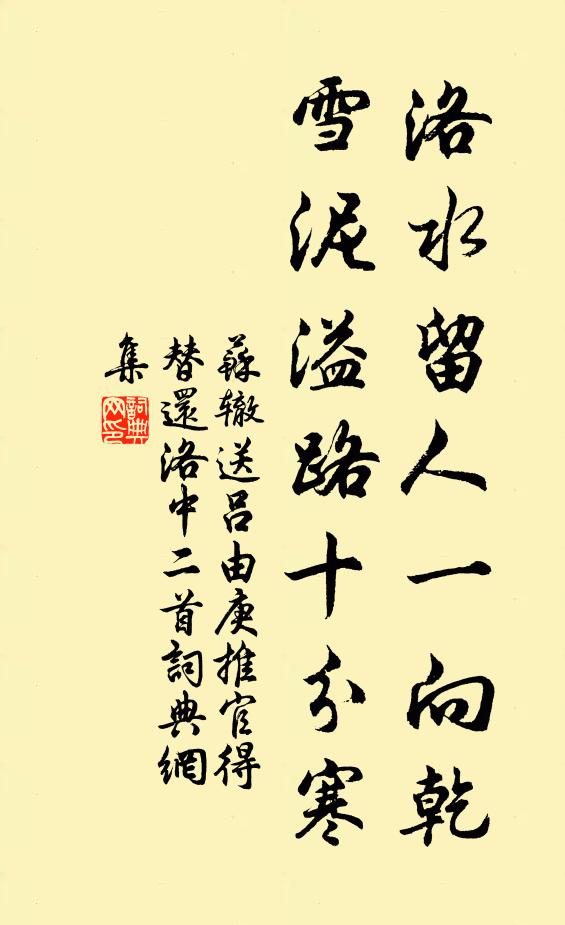 洛水留人一向乾
雪泥溢路十分寒
蘇辙送吕由庚推官得
替還洛中二首詞典網
集
詞典网印